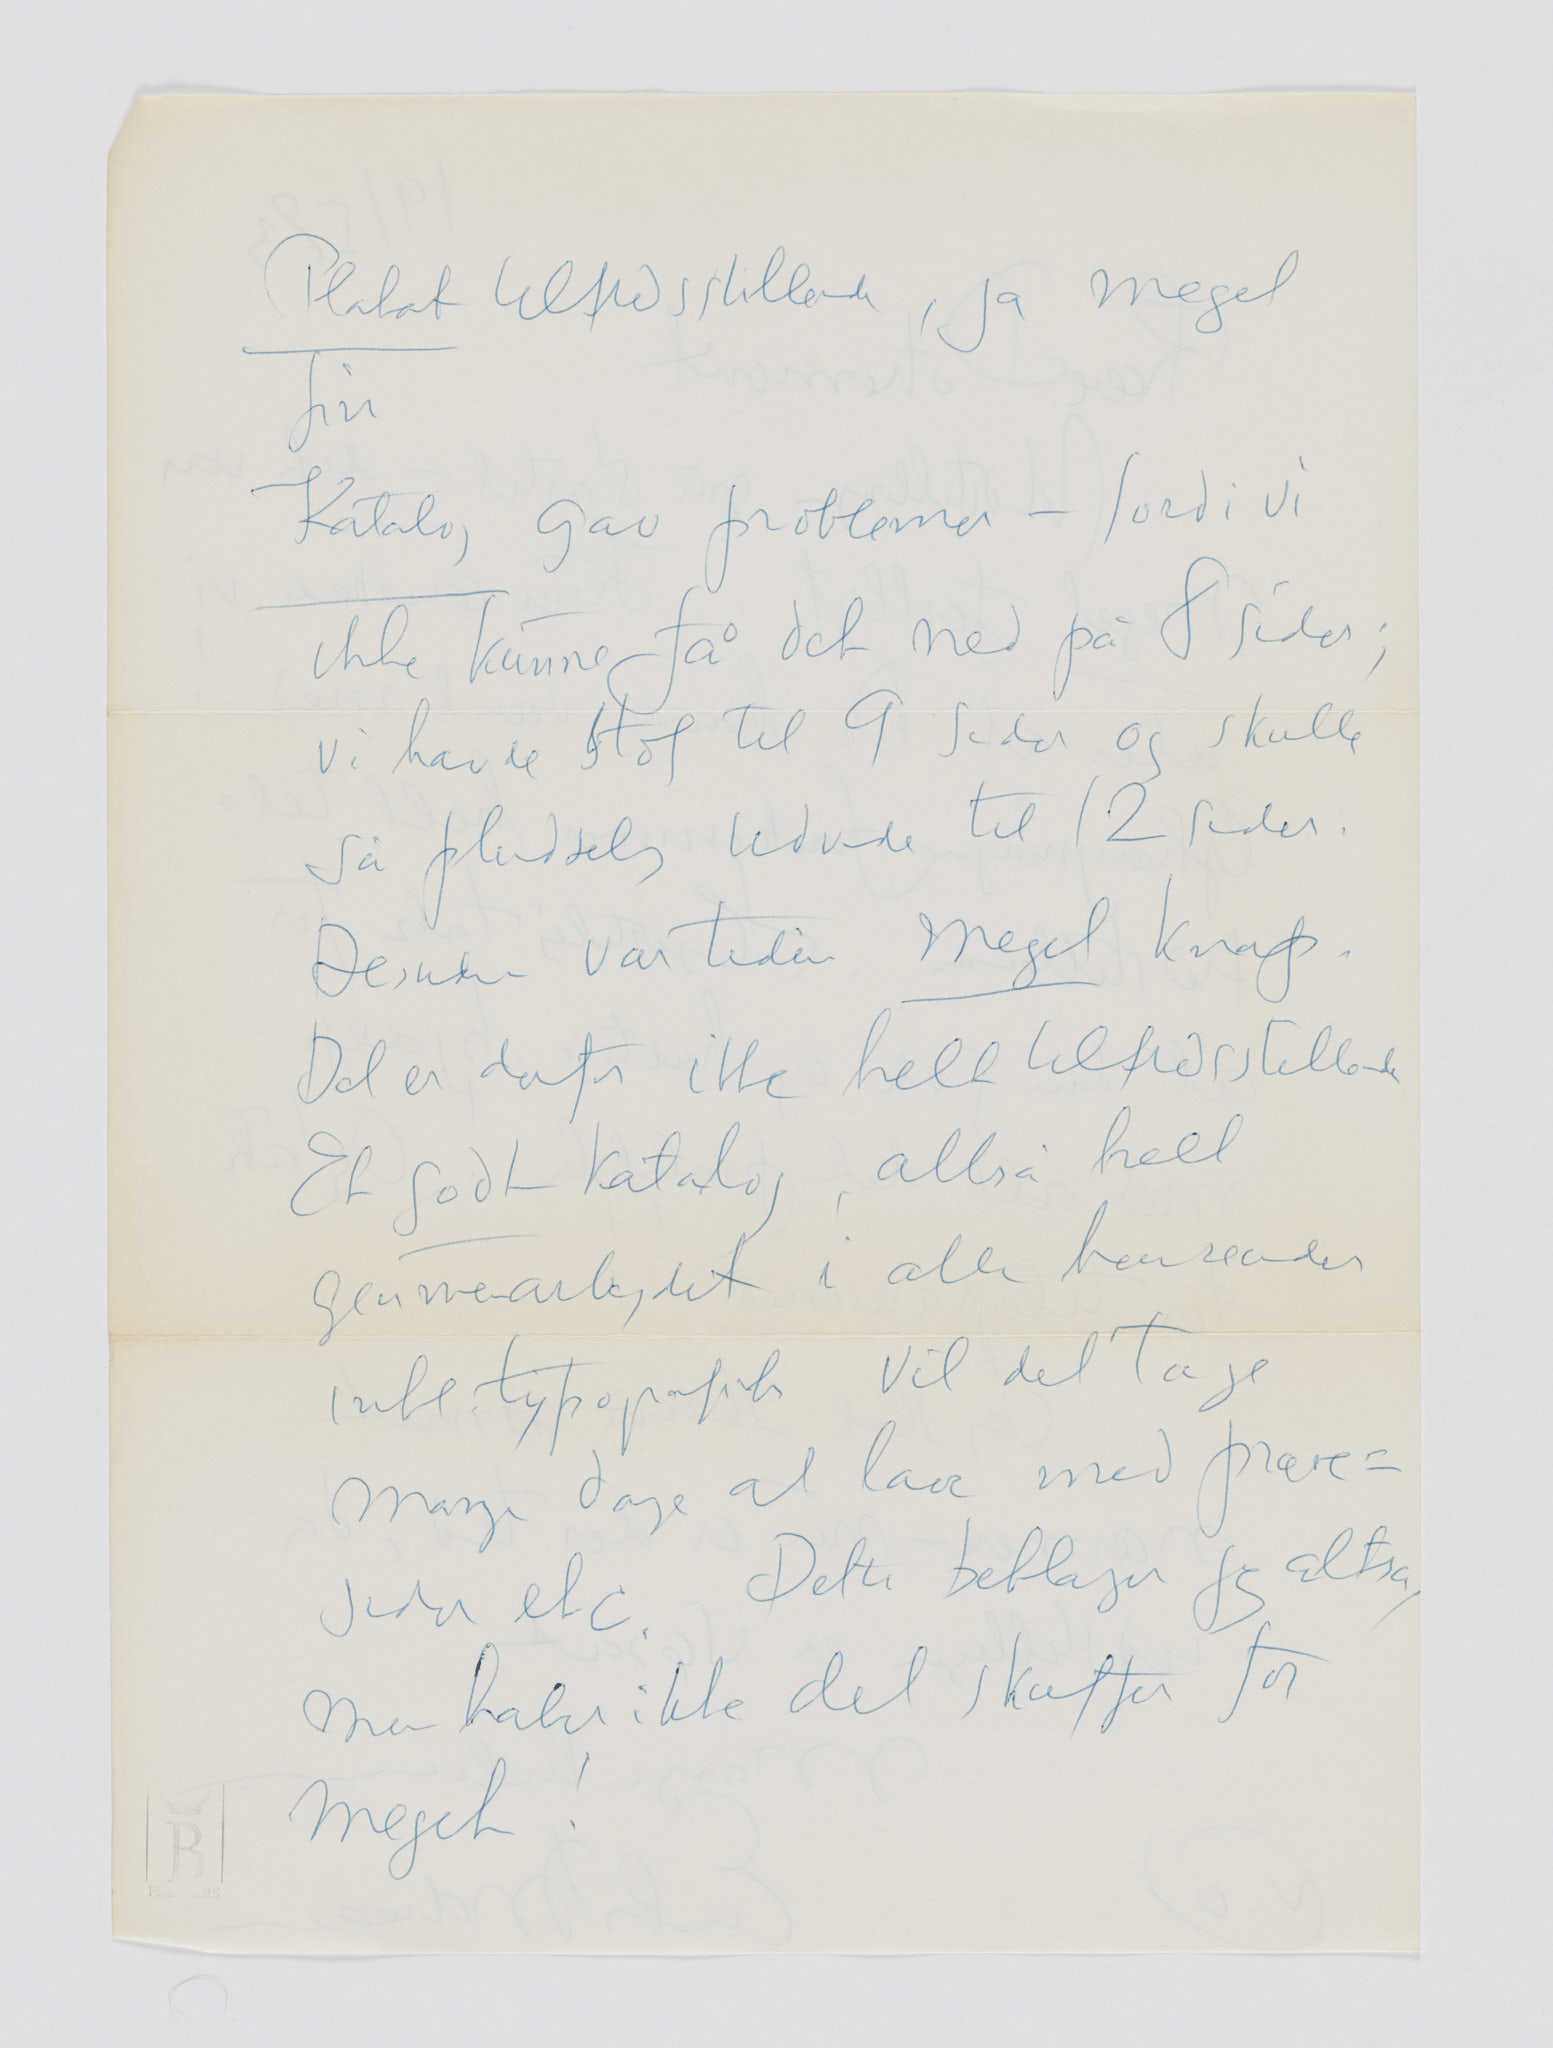 Plakat tilfredsstillende, ja meget
fin
Katalog gav problemer – fordi vi
ikke kunne få det ned på 8 sider;
vi havde stof til 9 sider og skulle
så pludselig udvide til 12 sider.
Desuden var tiden meget knap.
Det er derfor ikke helt tilfredsstillende
Et godt katalog, altså helt
gennemarbejdet i alle henseender
inkl. typografisk vil det tage
mange dage at lave med prøve=
sider etc. Dette beklager jeg altså,
men håber ikke det skuffer for
meget!
B